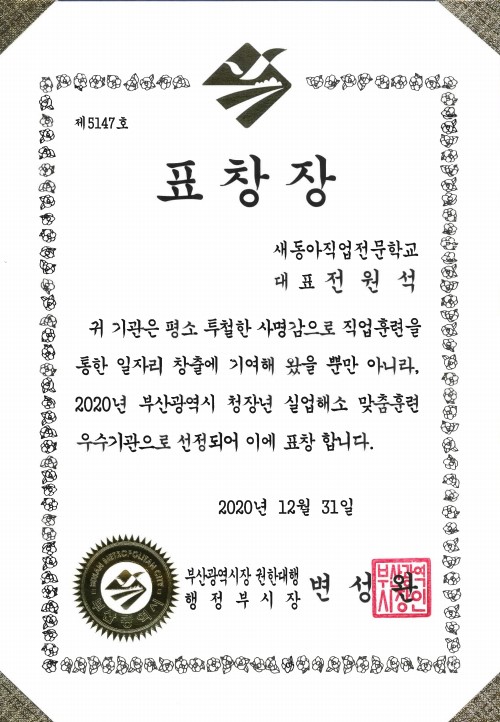 제5147호
표창장
새동아직업전문학교
대표 전원석
귀 기관은 평소 투철한 사명감으로 직업훈련을
통한 일자리 창출에 기여해 왔을 뿐만 아니라,
2020년 부산광역시 청장년 실업해소 맞춤훈련
우수기관으로 선정되어 이에 표창 합니다.
2020년 12월 31일
BUSAN METROPOLITAN CITY
부산광역시
부산광역시장 권한대행
행정부시장 변성완
부산광역
시장인